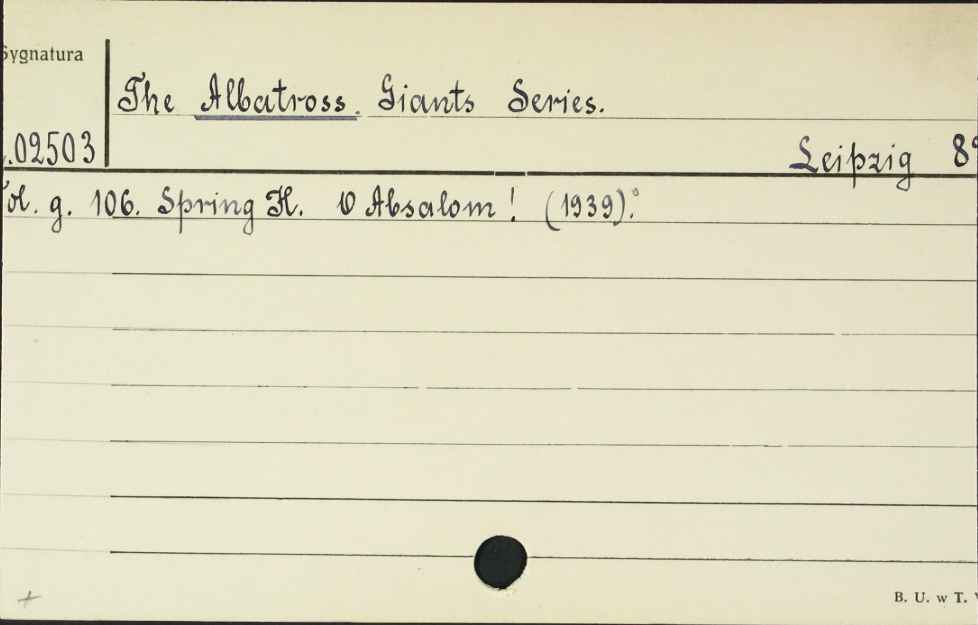 Sygnatura
The Albatross. Giants Series.
.02503
Leipzig 8°
Vol. g. 106. Spring H. O Absalom! (1939).°
B. U. w T.